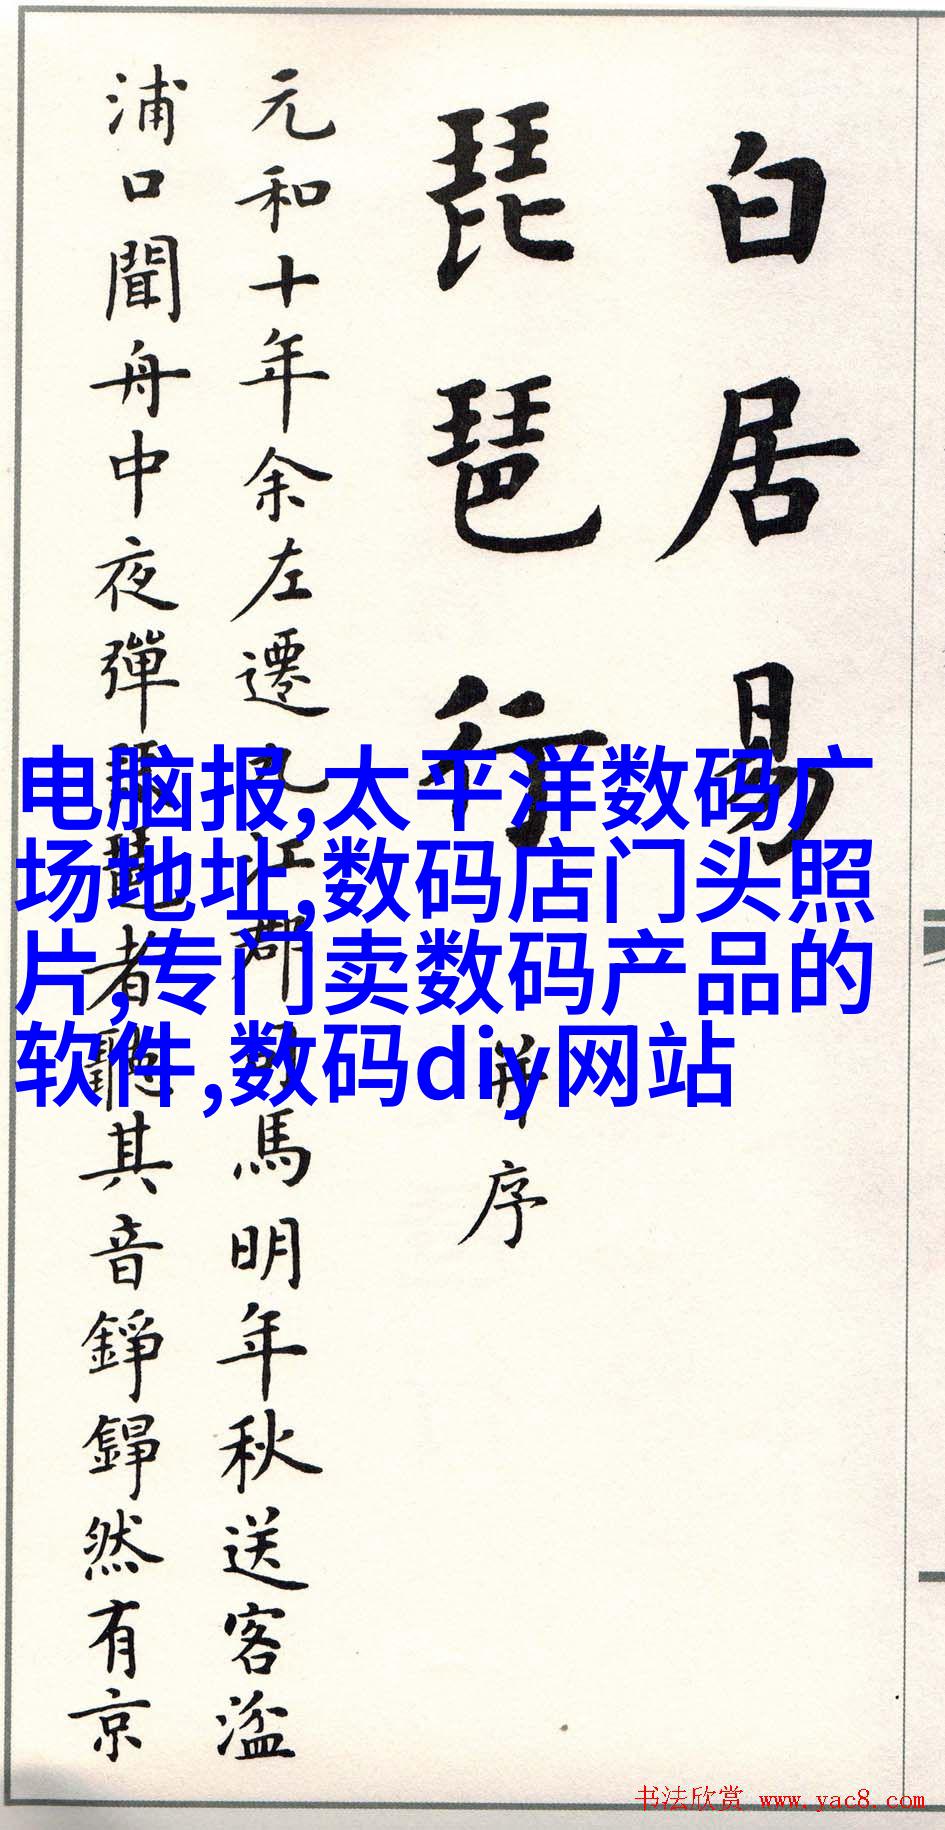 白居易
琵琶行
并序
元和十年余左遷九江郡司馬明年秋送客湓
浦口聞舟中夜彈琵琶者聽其音錚錚然有京
电脑报,太平洋数码广
场地址,数码店门头照
片,专门卖数码产品的
软件,数码diy网站
书法欣赏 www.yac8.com